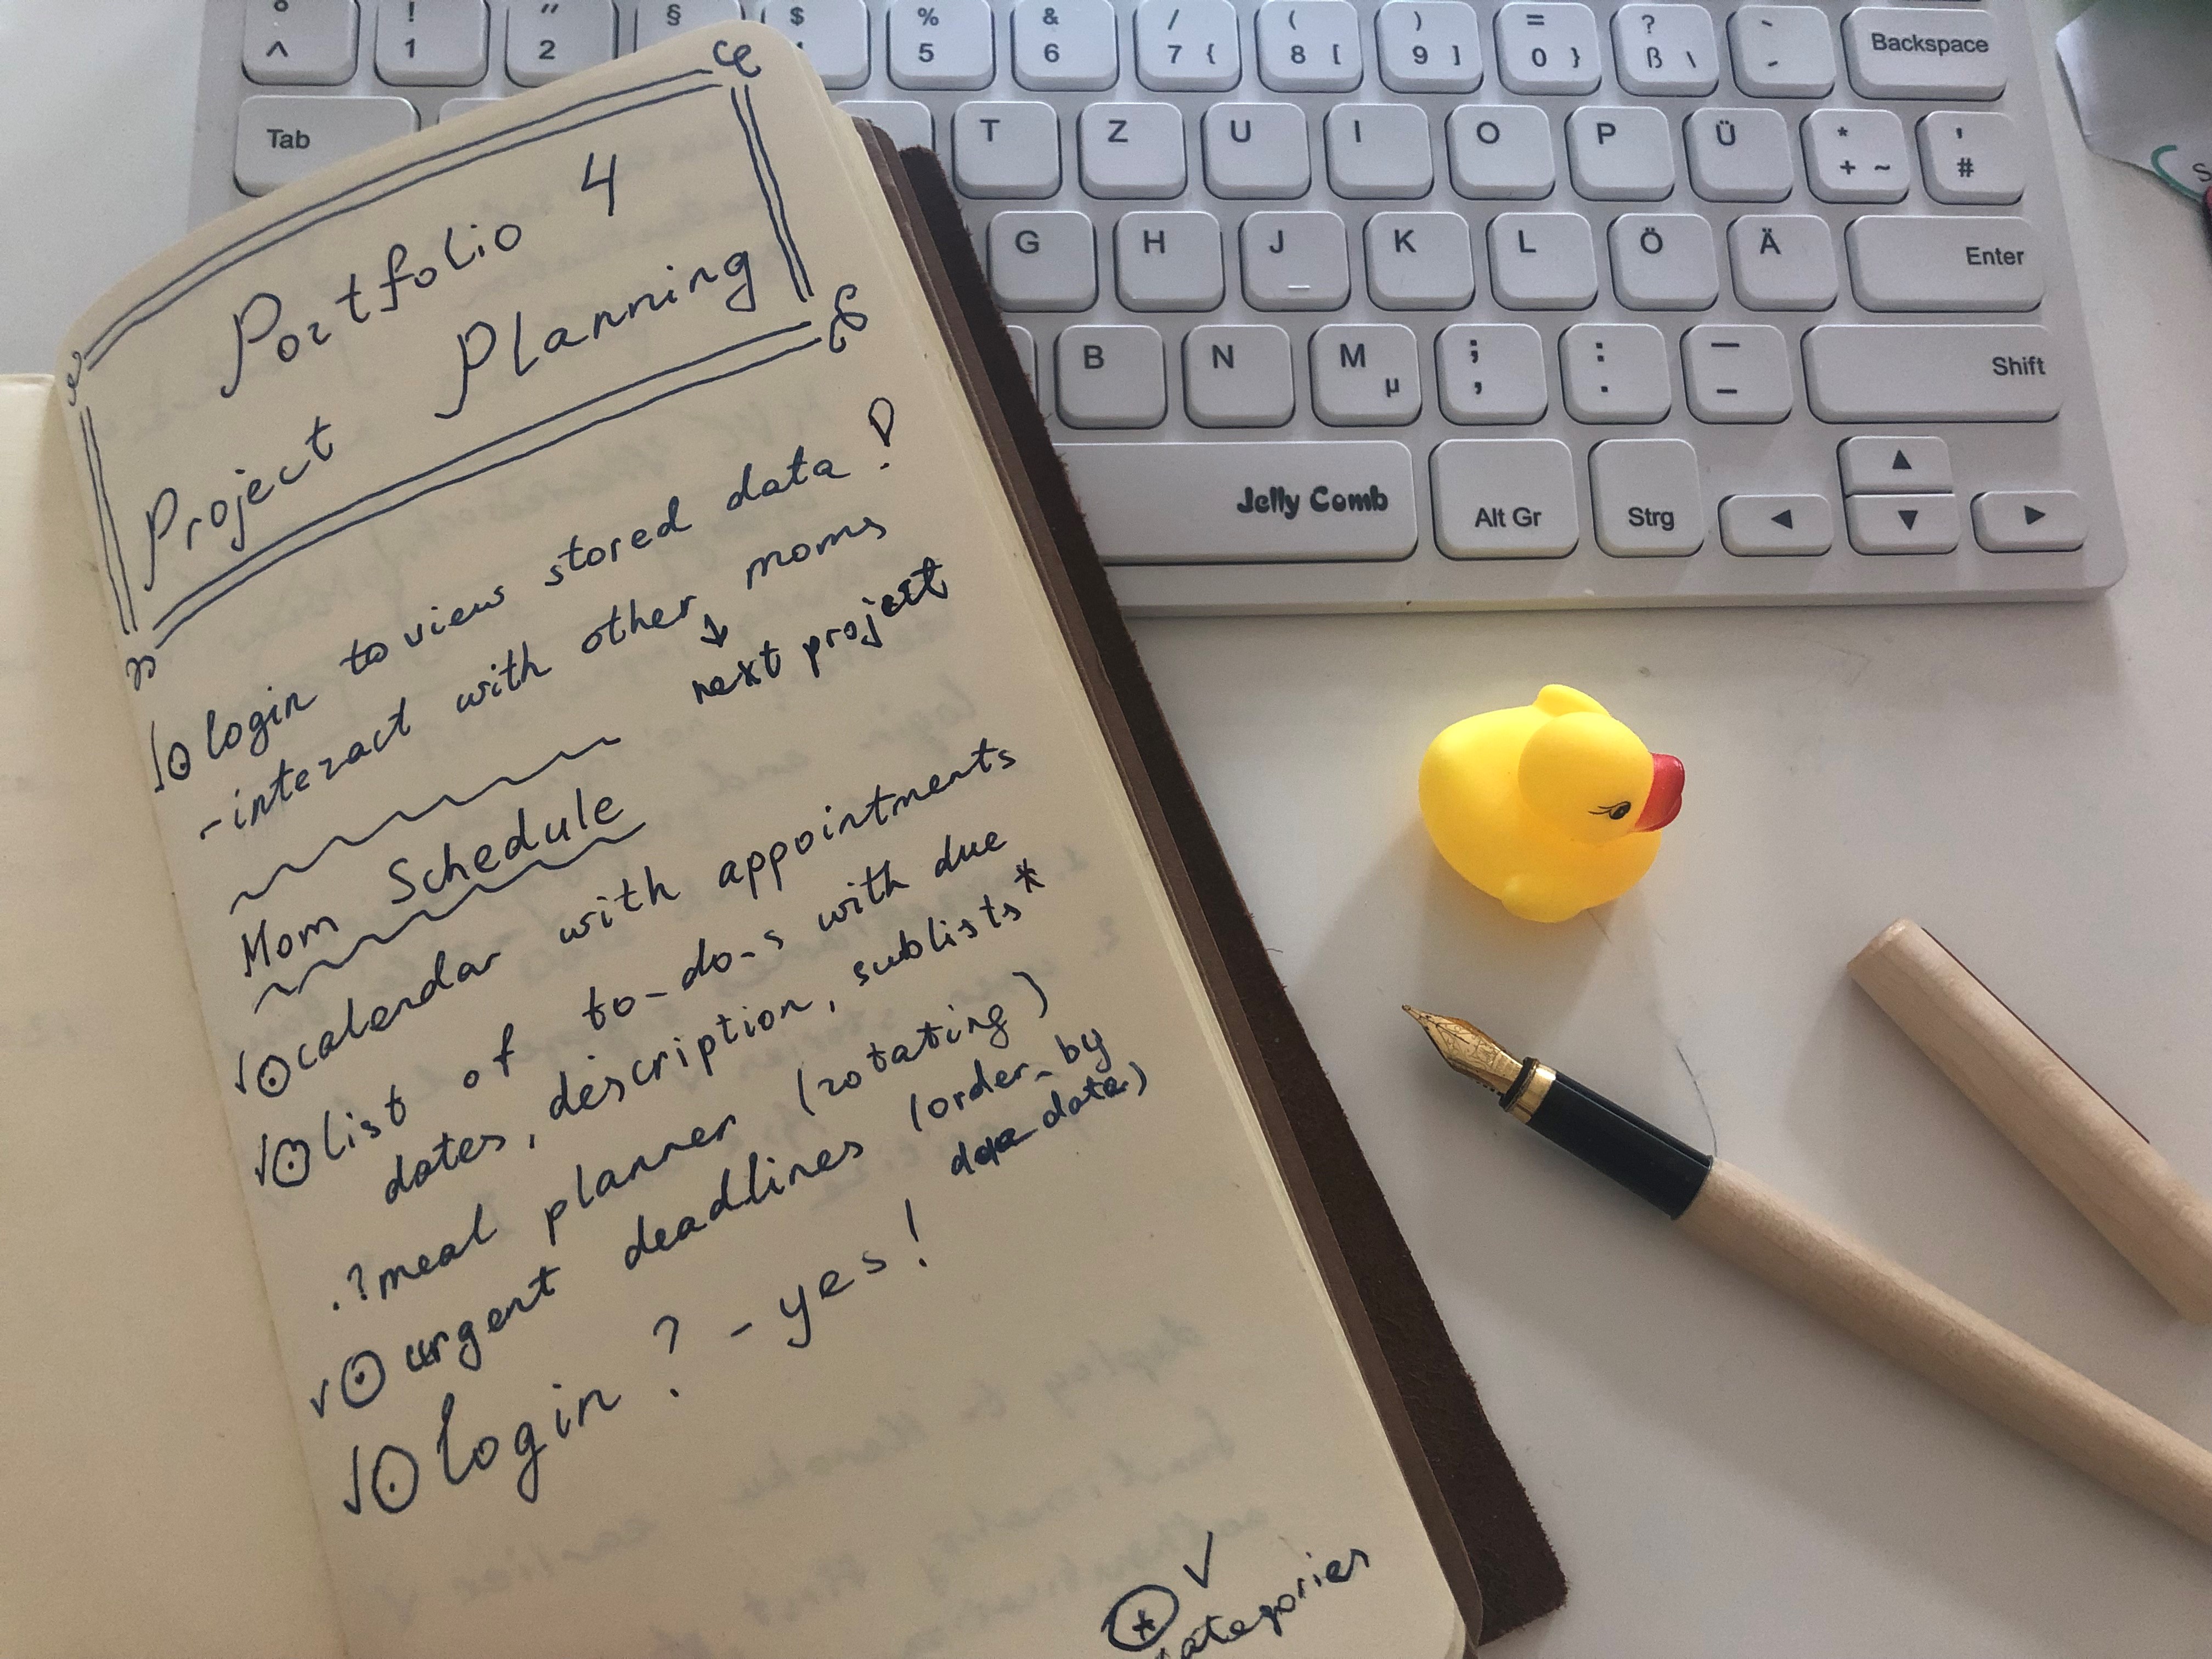 Portfolio 4
Project Planning
login to view stored data!
-interact with other moms
↓
next project
Mom Schedule
calendar with appointments
list of to-do-s with due
dates, description, sublists*
.?meal planner (rotating)
urgent deadlines (order_by
due date)
login? - yes!
* ✓
categories
° ^
! 1
" 2
§
$ 4
% 5
& 6
/ 7 {
( 8 [
) 9 ]
= 0 }
? ß \
` ´
Backspace
Tab
T
Z
U
I
O
P
Ü
* + ~
' #
G
H
J _
K
L
Ö
Ä
Enter
B
N
M µ
; ,
: .
— –
Shift
Jelly Comb
Alt Gr
Strg
◄
▲
▼
►